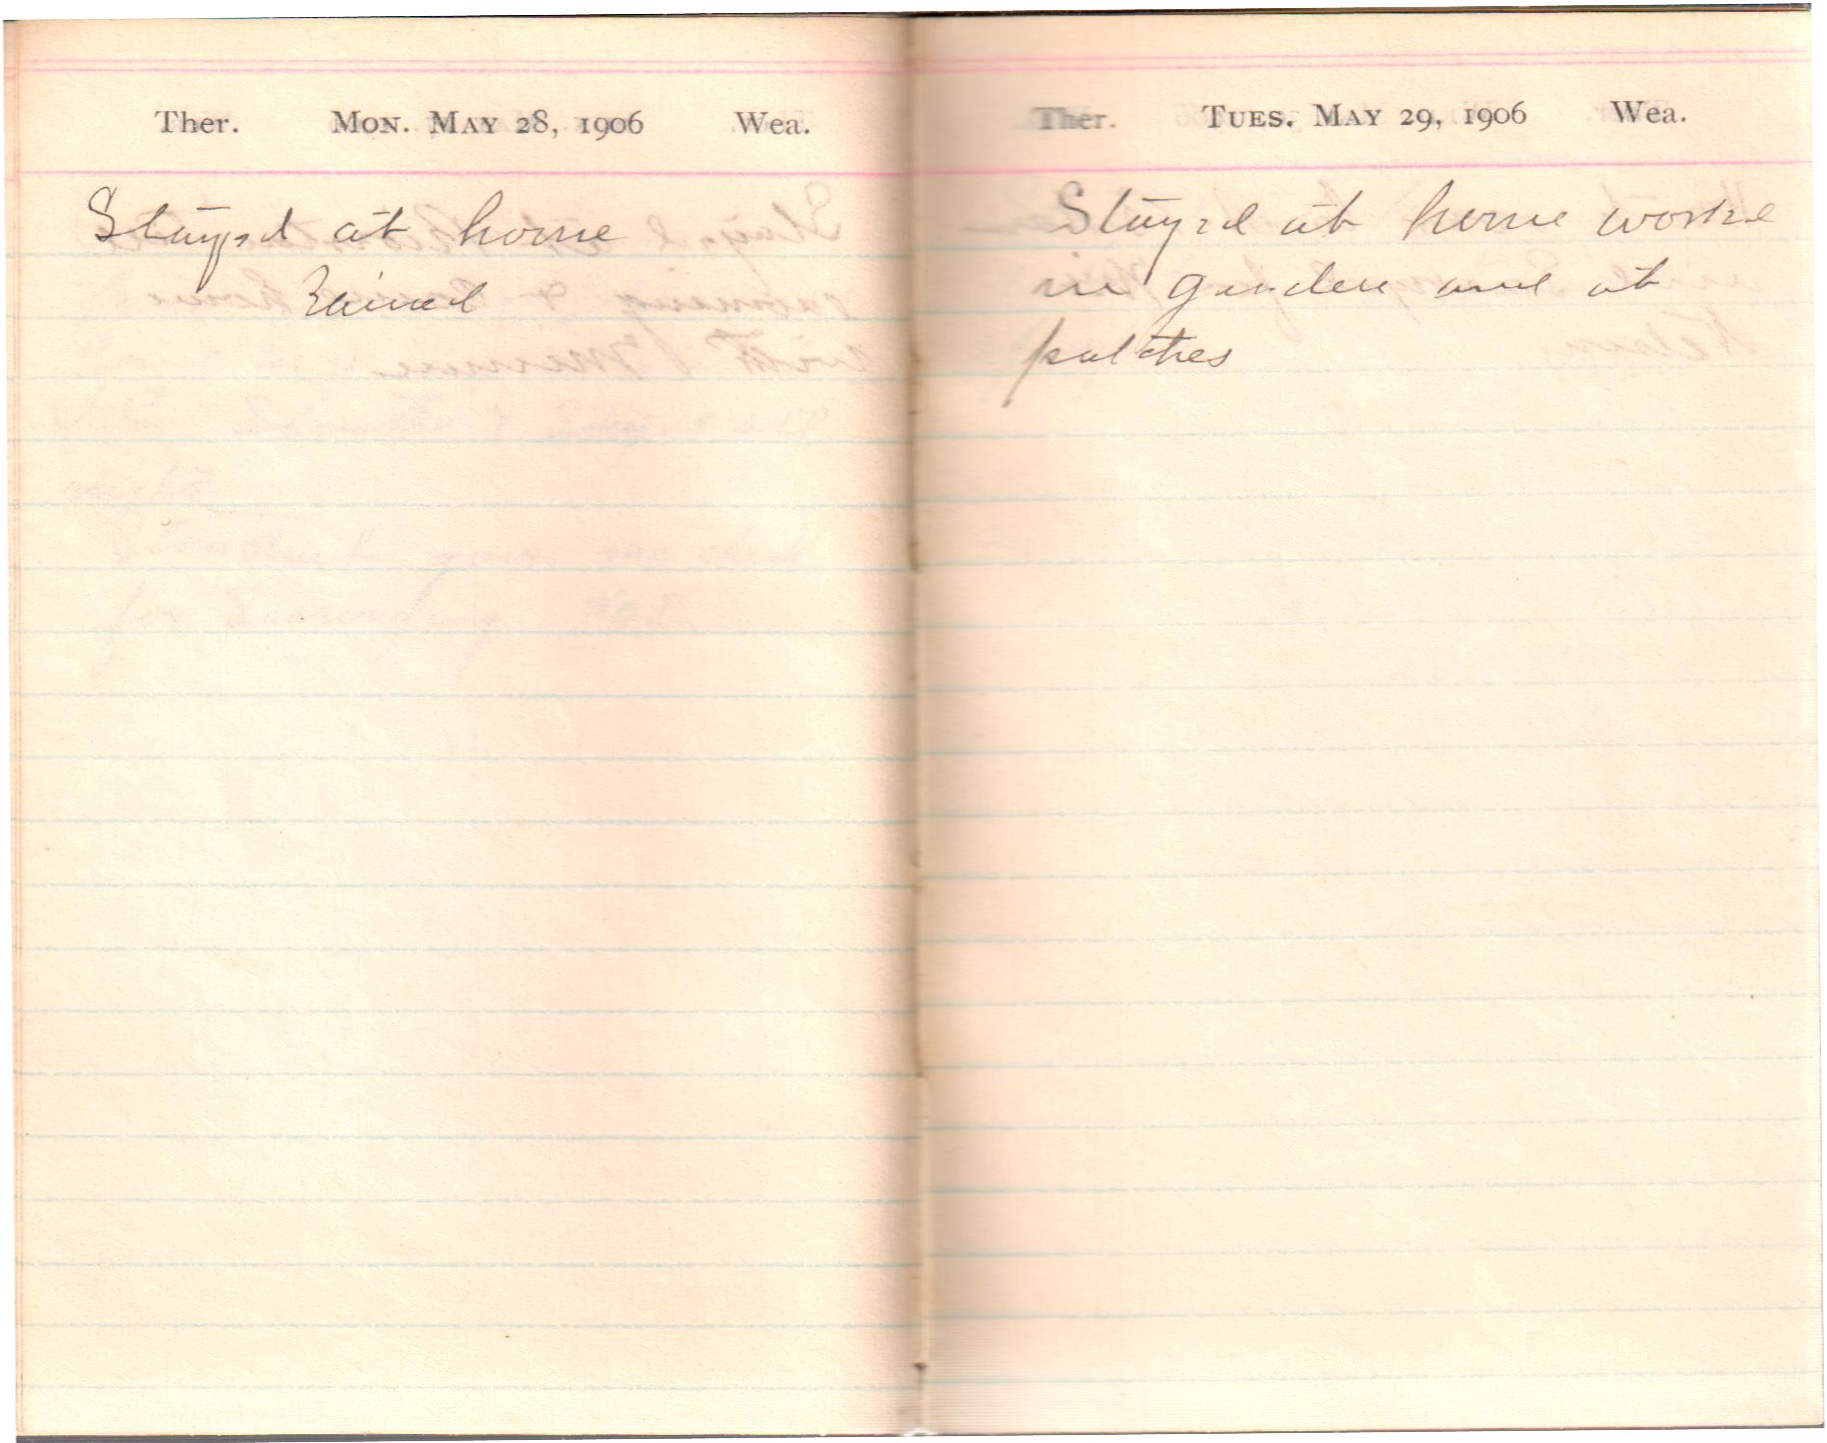 Ther. MON. MAY 28, 1906 Wea.
Stayed at home
Rained
Ther. TUES. MAY 29, 1906 Wea.
Stayed at home worke
in garden and at
patches